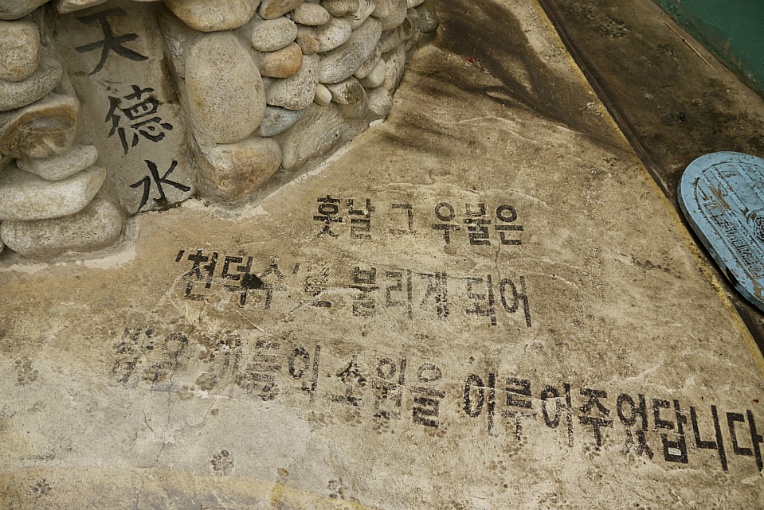 天德水
훗날 그 우물은
'천덕수'로 불리게 되어
많은 이들의 소원을 이루어주었답니다